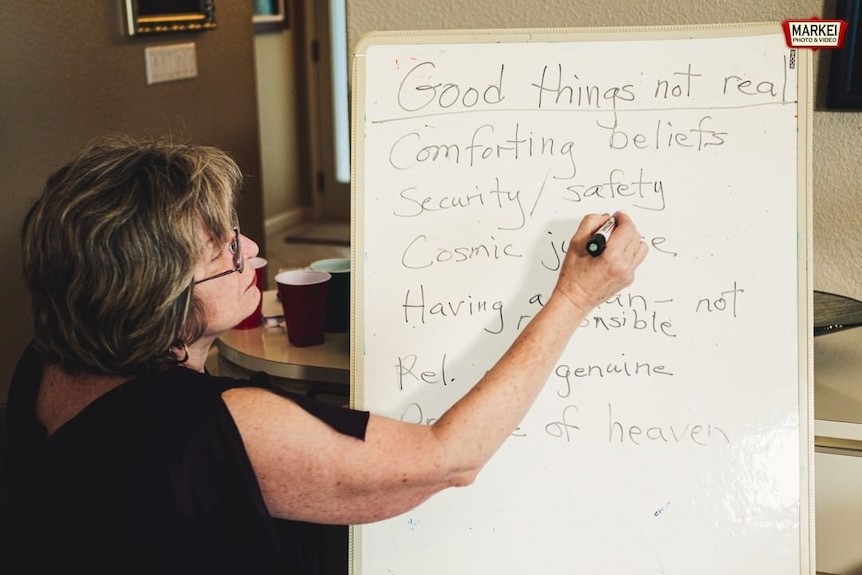 MARKEI
PHOTO & VIDEO
Good things not real
Comforting beliefs
Security/safety
Cosmic
Having a not
Rel. genuine
of heaven